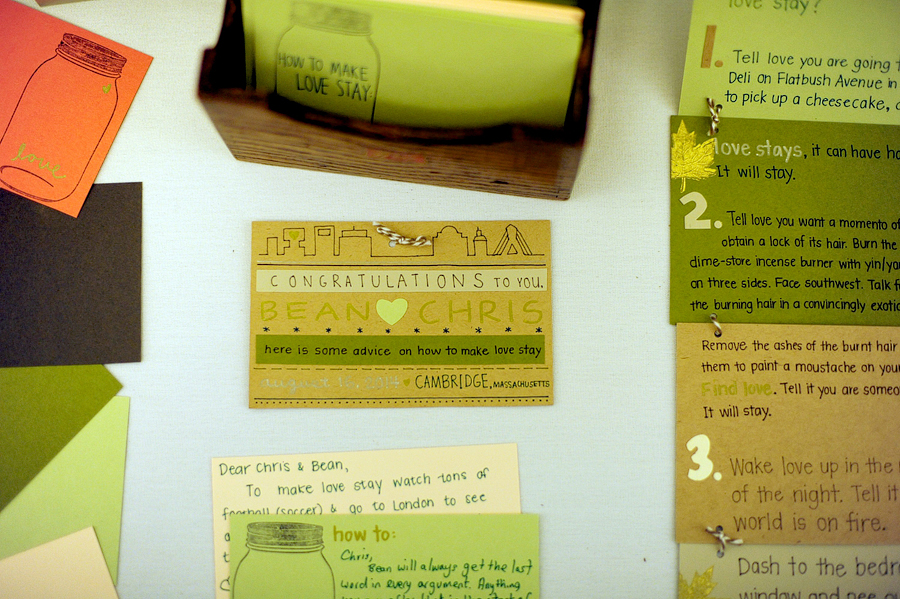 love
HOW TO MAKE
LOVE STAY
CONGRATULATIONS TO YOU,
BEAN CHRIS
here is some advice on how to make love stay
CAMBRIDGE, MASSACHUSETTS
Dear Chris & Bean,
To make love stay watch tons of
football (soccer) & go to London to see
how to:
Chris,
Bean will always get the last
word in every argument. Anything
love stay?
1. Tell love you are going
Deli on Flatbush Avenue in
to pick up a cheesecake,
love stays, it can have
It will stay.
2. Tell love you want a momento of
obtain a lock of its hair. Burn the
dime-store incense burner with yin/
on three sides. Face southwest. Talk
the burning hair in a convincingly
Remove the ashes of the burnt hair
them to paint a moustache on
Find love. Tell it you are
It will stay.
3. Wake love up in the
of the night. Tell it
world is on fire.
Dash to the
window and